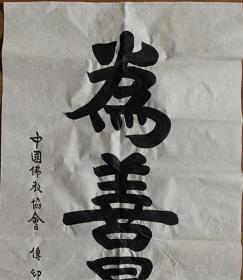 為善
中國佛教協會 傳印